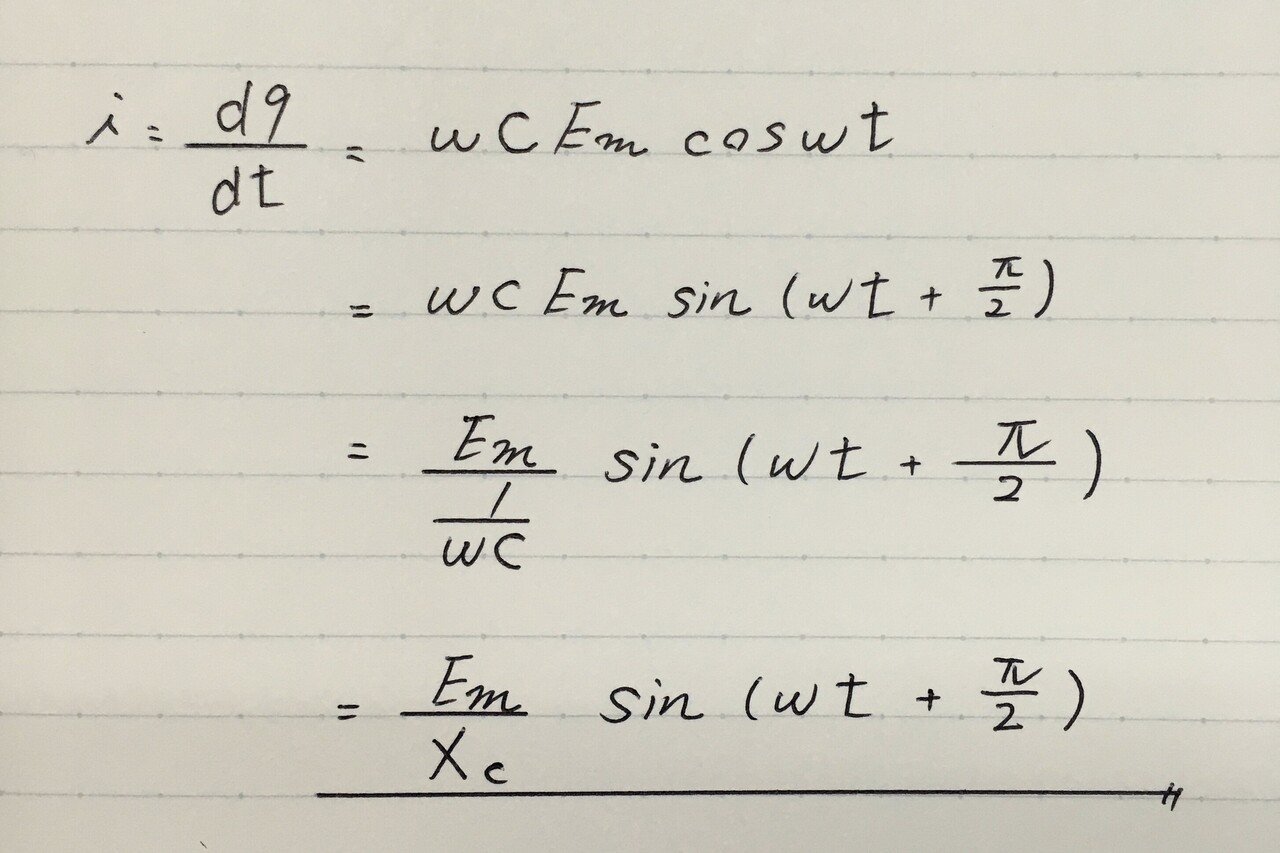 i = dq/dt = ωC Em cos ωt
= ωC Em sin (ωt + π/2)
= Em/(1/ωC) sin (ωt + π/2)
= Em/Xc sin (ωt + π/2)